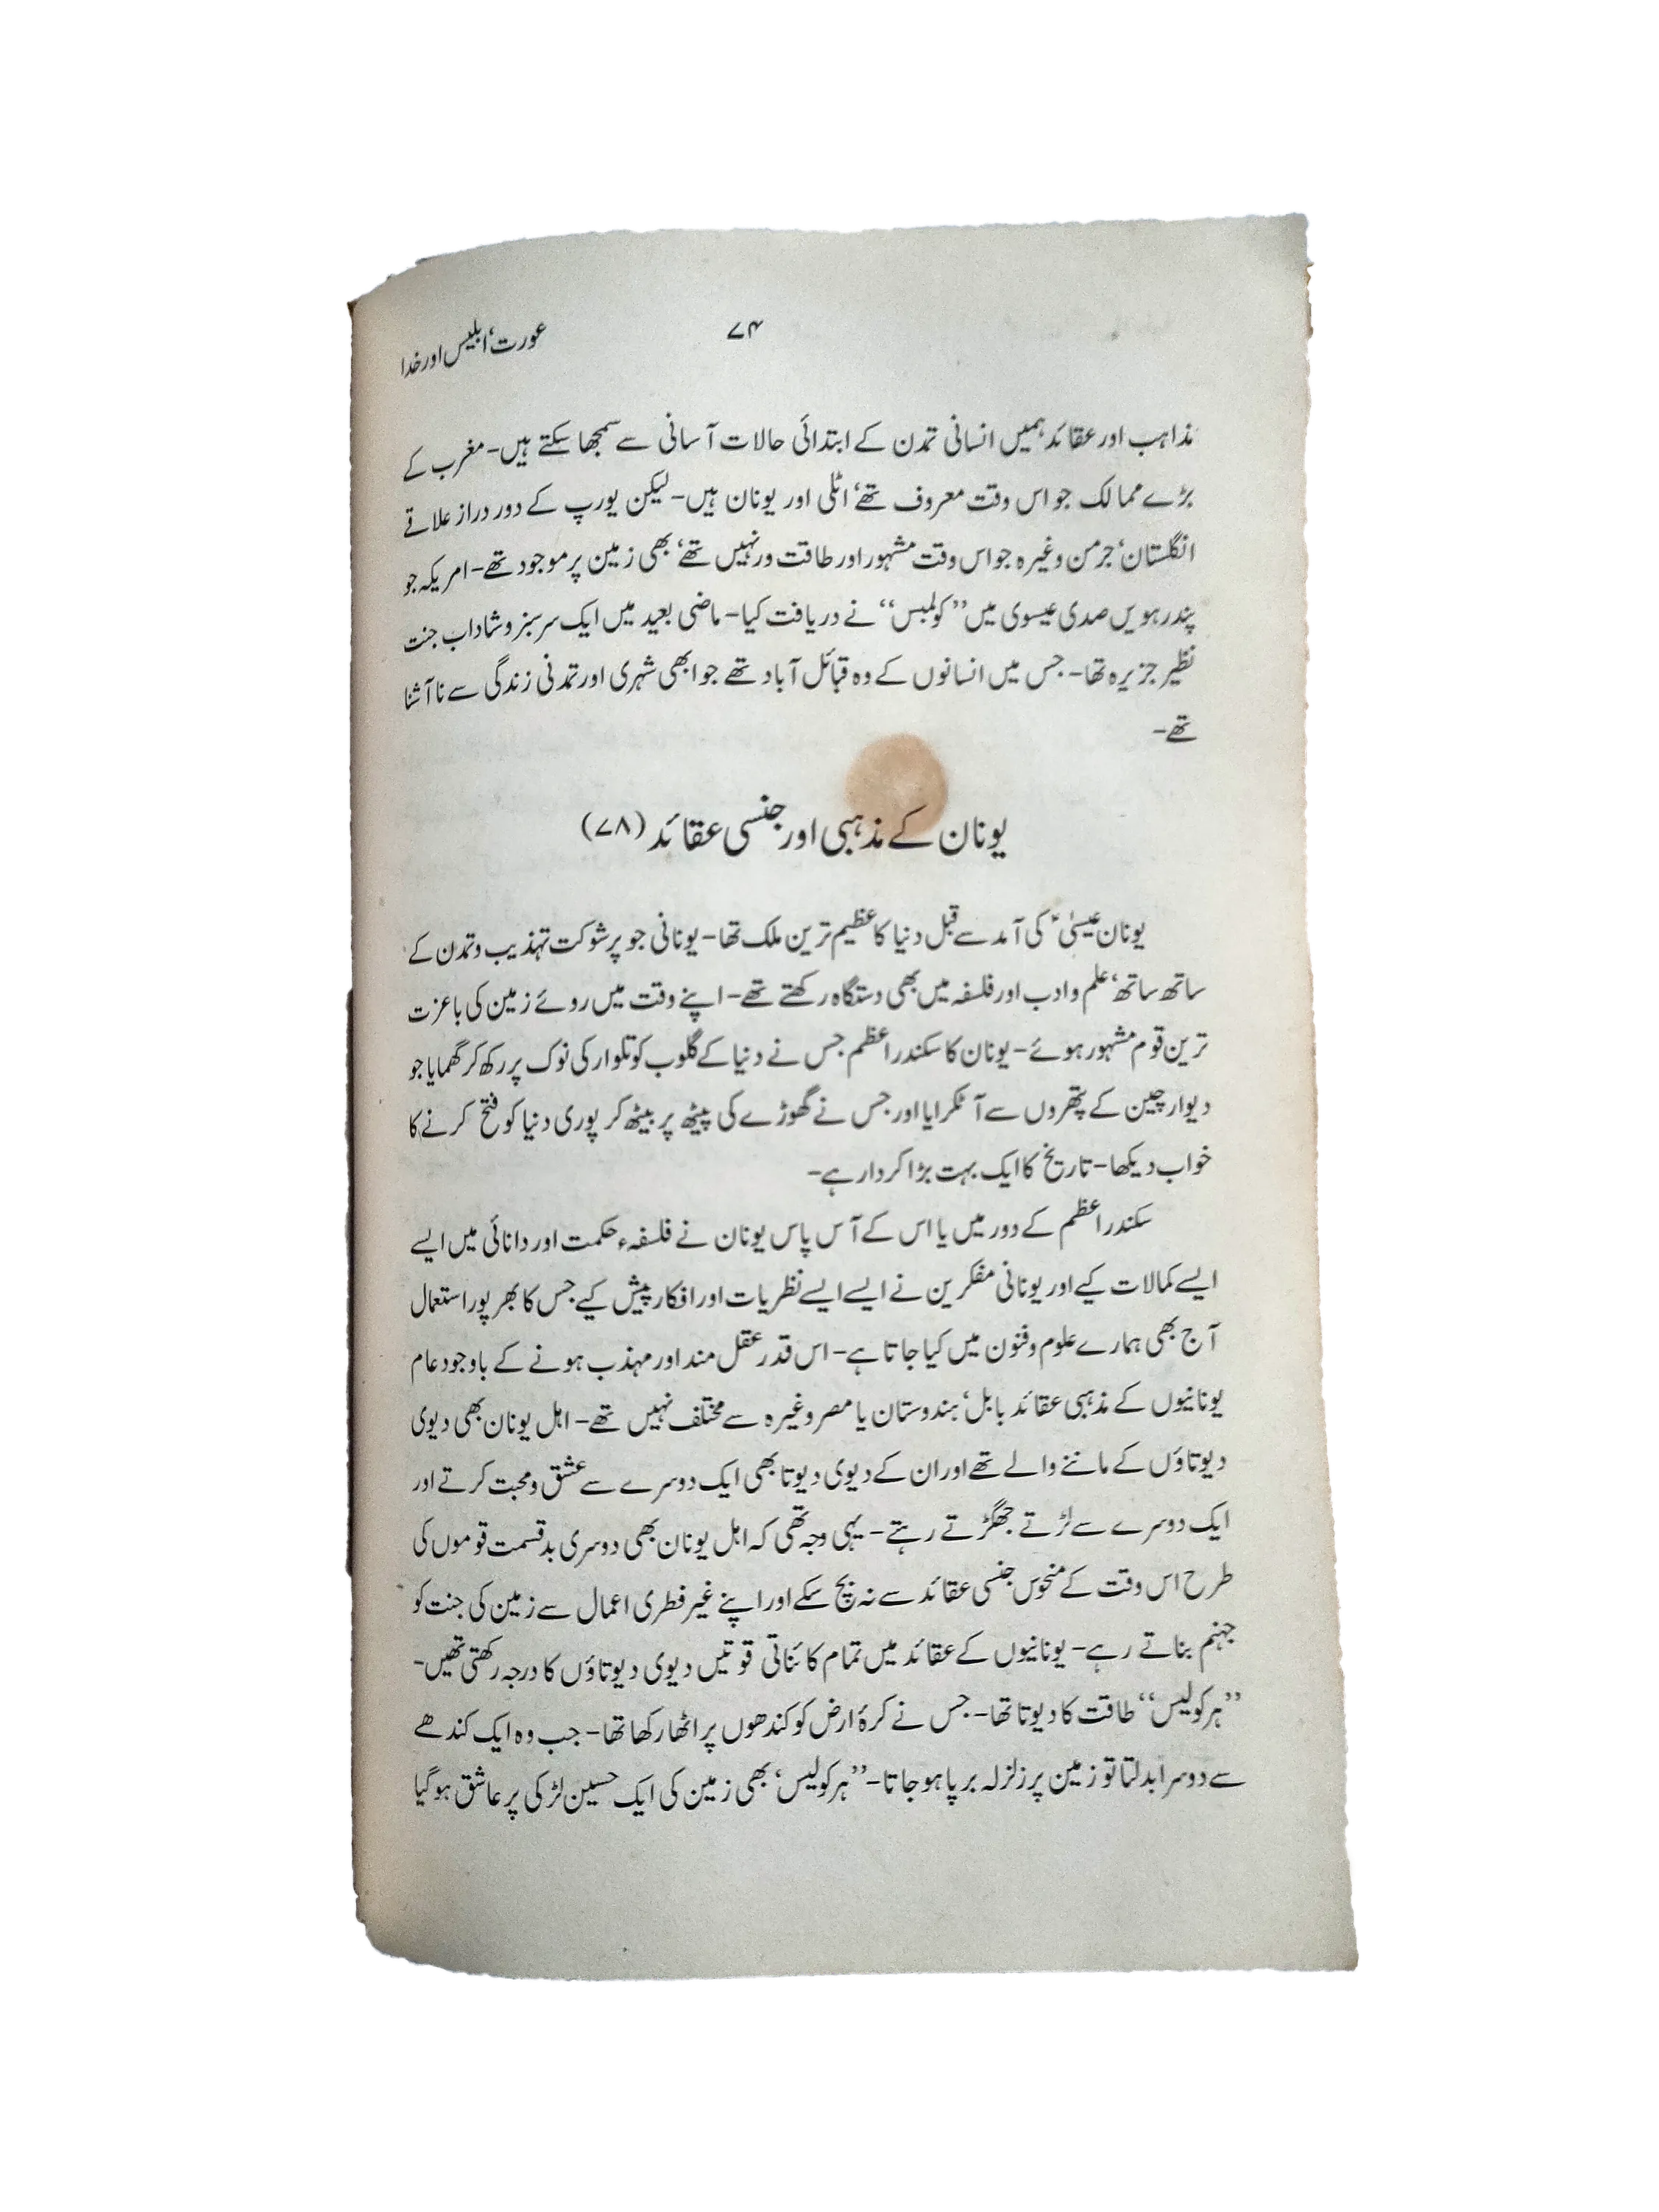 ۷۴
عورت‘ ابلیس اور خدا
مذاہب اور عقائد ہمیں انسانی تمدن کے ابتدائی حالات آسانی سے سمجھا سکتے ہیں- مغرب کے
بڑے ممالک جو اس وقت معروف تھے‘ اٹلی اور یونان ہیں- لیکن یورپ کے دور دراز علاقے
انگلستان‘ جرمن وغیرہ جو اس وقت مشہور اور طاقت ور نہیں تھے‘ بھی زمین پر موجود تھے- امریکہ جو
پندرہویں صدی عیسوی میں ”کولمبس“ نے دریافت کیا- ماضی بعید میں ایک سرسبز و شاداب جنت
نظیر جزیرہ تھا- جس میں انسانوں کے وہ قبائل آباد تھے جو ابھی شہری اور تمدنی زندگی سے نا آشنا
تھے-
یونان کے مذہبی اور جنسی عقائد (۷۸)
یونان عیسیٰؑ کی آمد سے قبل دنیا کا عظیم ترین ملک تھا- یونانی جو پرشوکت تہذیب و تمدن کے
ساتھ ساتھ‘ علم و ادب اور فلسفہ میں بھی دستگاہ رکھتے تھے- اپنے وقت میں روئے زمین کی باعزت
ترین قوم مشہور ہوئے- یونان کا سکندر اعظم جس نے دنیا کے گلوب کو تلوار کی نوک پر رکھ کر گھمایا جو
دیوار چین کے پتھروں سے آ ٹکرایا اور جس نے گھوڑے کی پیٹھ پر بیٹھ کر پوری دنیا کو فتح کرنے کا
خواب دیکھا- تاریخ کا ایک بہت بڑا کردار ہے-
سکندر اعظم کے دور میں یا اس کے آس پاس یونان نے فلسفہء حکمت اور دانائی میں ایسے
ایسے کمالات کیے اور یونانی مفکرین نے ایسے ایسے نظریات اور افکار پیش کیے جس کا بھرپور استعمال
آج بھی ہمارے علوم و فنون میں کیا جاتا ہے- اس قدر عقل مند اور مہذب ہونے کے باوجود عام
یونانیوں کے مذہبی عقائد بابل‘ ہندوستان یا مصر وغیرہ سے مختلف نہیں تھے- اہل یونان بھی دیوی
دیوتاؤں کے ماننے والے تھے اور ان کے دیوی دیوتا بھی ایک دوسرے سے عشق و محبت کرتے اور
ایک دوسرے سے لڑتے جھگڑتے رہتے- یہی وجہ تھی کہ اہل یونان بھی دوسری بدقسمت قوموں کی
طرح اس وقت کے منحوس جنسی عقائد سے نہ بچ سکے اور اپنے غیر فطری اعمال سے زمین کی جنت کو
جہنم بناتے رہے- یونانیوں کے عقائد میں تمام کائناتی قوتیں دیوی دیوتاؤں کا درجہ رکھتی تھیں-
”ہرکولیس“ طاقت کا دیوتا تھا- جس نے کرۂ ارض کو کندھوں پر اٹھا رکھا تھا- جب وہ ایک کندھے
سے دوسرا بدلتا تو زمین پر زلزلہ برپا ہو جاتا- ”ہرکولیس‘ بھی زمین کی ایک حسین لڑکی پر عاشق ہو گیا